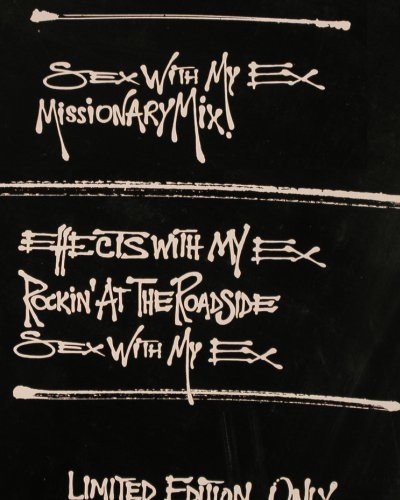 Sex With My Ex
Missionary Mix!
Effects With My Ex
Rockin' At The Roadside
Sex With My Ex
Limited Edition Only